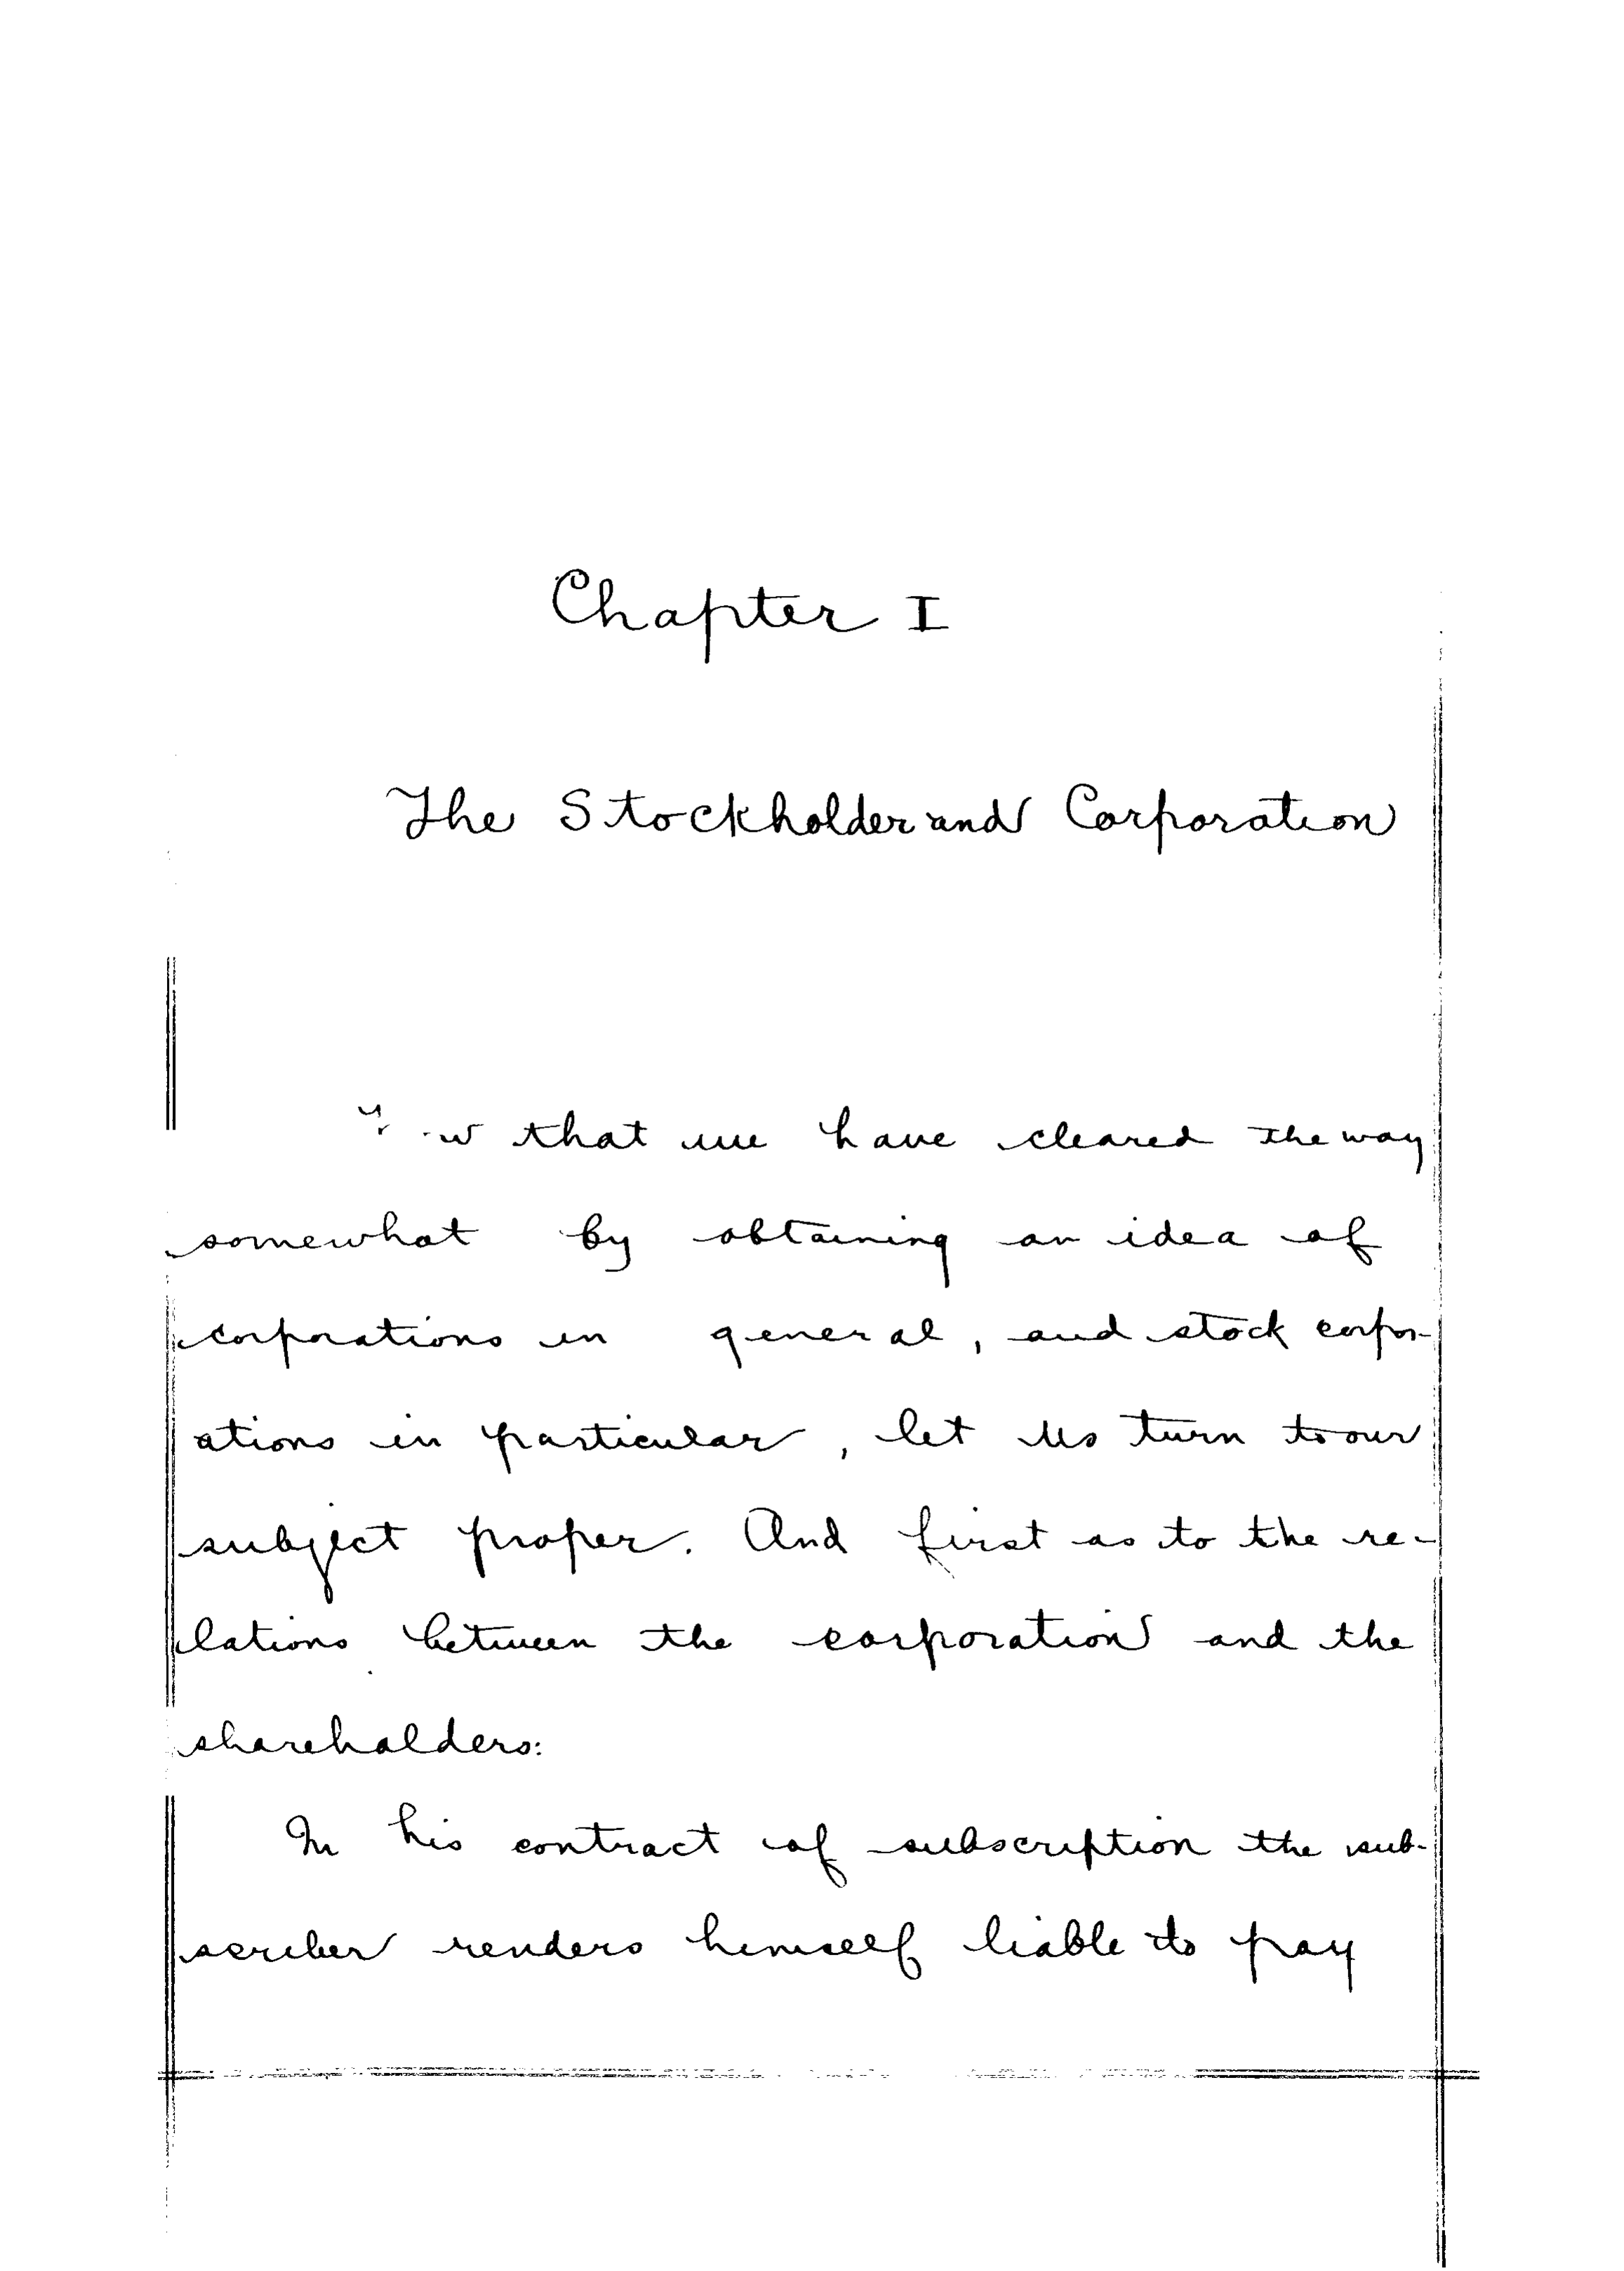 Chapter I
The Stockholder and Corporation
that we have cleared the way
somewhat by obtaining an idea of
corporations in general, and stock corpor-
ations in particular, let us turn to our
subject proper. And first as to the re-
lations between the corporation and the
shareholders:
In his contract of subscription the sub-
scriber renders himself liable to pay